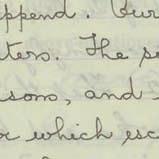 append. Bur
ters. The se
sons, and
or which esc